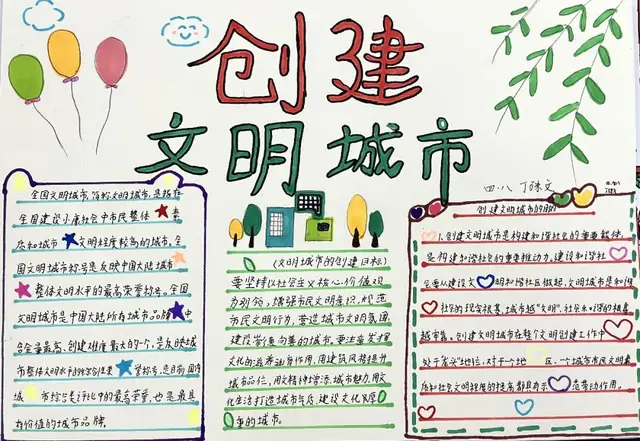 创建
文明城市
四.八 丁珠文
全国文明城市,简称文明城市,是指在
全国建设小康社会中市民整体素
质和城市文明程度较高的城市。全
国文明城市称号是反映中国大陆城市
整体文明水平的最高荣誉称号。全国
文明城市是中国大陆所有城市品牌中
含金量最高、创建难度最大的一个,是反映城
市整体文明水平的综合性荣誉称号,是目前国内
城市综合类评比中的最高荣誉,也是最具
有价值的城市品牌。
《文明城市的创建目标》
要坚持以社会主义核心价值观
为引领,增强市民文明意识,规范
市民文明行为,营造城市文明氛围
建设崇德向善的城市。要注重发挥
文化的滋养涵育作用,用建筑风格提升
城市品位,用文精神增添城市魅力,用文
化生活打造城市气质,建设文化厚
事的城市。
创建文明城市的
1.创建文明城市是构建和谐社会的重要载体
是构建和谐社会的重要推动力。建设和谐社
会要从建设文明和谐社区做起,文明城市是和谐
社会的现实根基,城市越“文明”,社会和谐的根基
越牢靠。创建文明城市在整个文明创建工作中
处于龙头“地位,对于一个地区、一个城市市民文明素
质和社会文明程度的提高都具有示范带动作用。